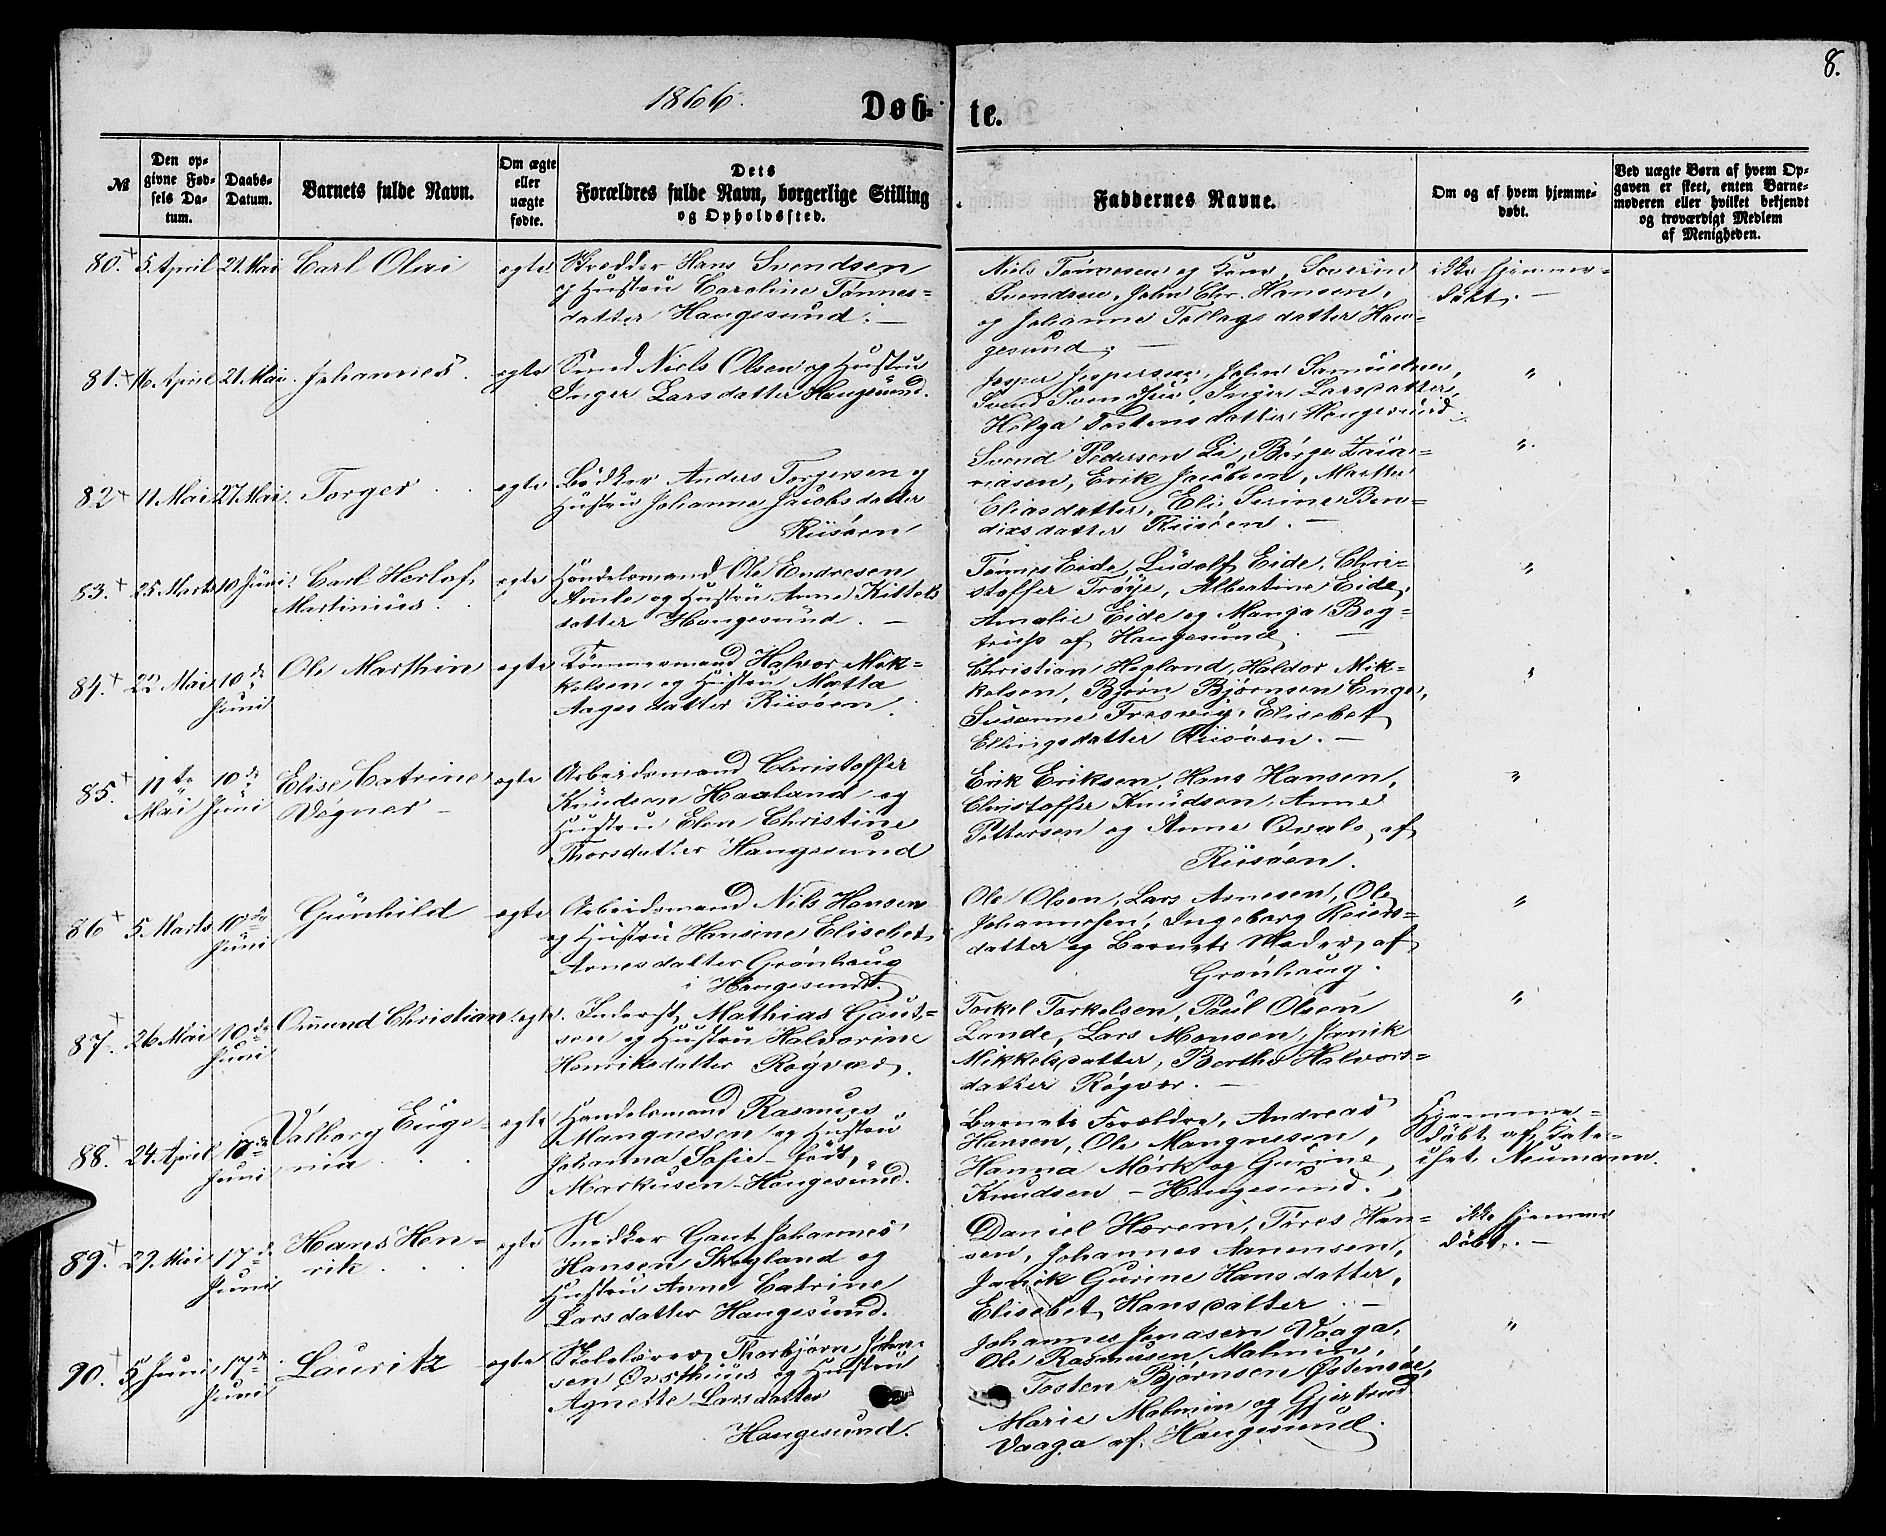 8.
1866.
Døb- te.
№
Den op-
givne Fød-
sels Da-
tum.
Daabs-
Datum.
Barnets fulde Navn.
Om ægte
eller
uægte
fødte.
Dets
Forældres fulde Navn, borgerlige Stilling
og Opholdssted.
Faddernes Navne.
Om og af hvem hjemme-
døbt.
Ved uægte Børn af hvem Op-
gaven er skeet, enten Barne-
moderen eller hvilket bekjendt
og troværdigt Medlem
af Menigheden.
80. + 5. April 21. Mai Carl Olai egte
Hans Svendsen
og Hustru Caroline Tønnes-
datter Haugesund. —
Niels Tønnesen og Kone, Severin
Svendsen, John Chr. Hansen,
og Johanne Tollagsdatter Hau-
gesund. —
ikke hjemme-
døbt. —
81. + 16. April 21. Mai Johannes. egte
Smed Niels Olsen og Hustru
Inger Larsdatter Haugesund.
Jesper Jespersen, John Samuelsen,
Svend Svendsen, Inger Larsdatter,
Helga Tostensdatter Haugesund.
"
82 + 11 Mai 27 Mai. Torger . . egte
Bødker Anders Torgersen og
Hustru Johanne Jacobsdatter
Riisøen
Svend Pedersen Li, Børge Zaia-
riasen, Erik Jacobsen, Marthe
Eliasdatter, Eli Serine Ben-
dixsdatter Riisøen. —
"
83. + 25 Marts 10 Juni. Carl Herlof
Martinius . . egte
Handelsmand Ole Endresen
Amle og Hustru Anne Kittels
datter Haugesund. —
Tønnes Eide, Ludolf Eide, Chri-
stoffer Trøye, Albertine Eide,
Amalie Eide og Manga Bog-
trup af Haugesund. —
"
84. + 22 Mai 10 de
Juni Ole Marthin egte
Tømmermand Halvor Mik-
kelsen og Hustru Metta
Aagesdatter Riisøen.
Christian Høgland, Haldor Mik-
kelsen, Bjørn Bjørnsen Enge,
Susanne Fresvig, Elisebet
Ellingsdatter Riisøen. —
"
85. + 11 te
Mai 10 de
Juni Elise Catrine
Vogner — egte
Arbeidsmand Christoffer
Knudsen Haaland og
Hustru Elen Christine
Thorsdatter Haugesund
Erik Eriksen, Hans Hansen,
Christoffer Knudsen, Anne
Pettersen og Anne Qvale af
Riisøen.
"
86 + 5. Marts 10 de
Juni Gunhild egte
Arbeidsmand Nils Hansen
og Hustru Hansine Elisebet
Arnesdatter Grønhaug
i Haugesund.
Ole Olsen, Lars Arnesen, Ole
Johannessen, Ingeborg
datter og Barnets Moder, af
Grønhaug.
"
87. + 26 Mai 10 de
Juni Omund Christian egte.
Inderst Mathias Gaut-
sen og Hustru Halvorine
Henriksdatter Røgvær.
Torkel Torkelsen, Paul Olsen
Lande, Lars Monsen, Janik
Mikkelsdatter, Berthe Halvors-
datter Røgvær. —
"
88. + 24. April 10 de
Juni Valborg Euge-
nia . . egte
Handelsmand Rasmus
Mangnesen og Hustru
Johanna Sofie født
Markusen – Haugesund.
Barnets Forældre, Andreas
Hansen, Ole Mangnesen,
Hanna Mørk og Gurine
Knudsen – Haugesund.
Hjemme-
døbt af Kate-
chet Neumann.
89. + 29. Mai 17 de
Juni Hans Hen-
rik . . . egte
Snedker Gaut Johannes
Hansen Skogland og
Hustru Anne Catrine
Larsdatter Haugesund.
Daniel Herem, Tøres Han-
sen, Johannes Arnensen,
Janik Gurine Hansdatter,
Elisebet Hansdatter. —
ikke hjemme
døbt. —
90. + 5 Juni 17 de
Juni Lauritz egte
Skolelærer Thorbjørn Johan-
sen Ørsthuus og Hustru
Agnette Larsdatter
Haugesund.
Johannes Jonasen Vaaga,
Ole Rasmusen Malmin,
Tosten Bjørnsen Østensøe,
Marie Malmin og Gjertrud
Vaaga af Haugesund.
"